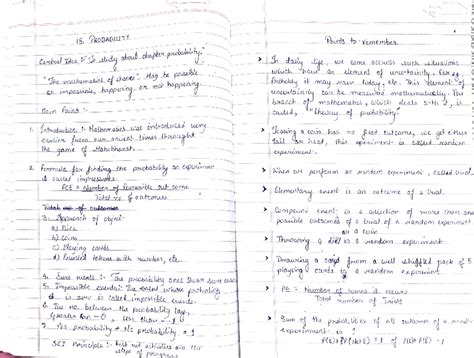 15. PROBABILITY
Central Idea :- "To study about chapter probability."
"The mathematics of chance". May be possible
or impossible, happening or not happening.
Main Points :-
1. Introduction :- Mathematics was introduced using
earlier from our ancient times through
the game of Mahabharat.
2. Formula for finding the probability an experiment
is called
P(E) = Number of favourable out come
Total no. of outcomes
Total no. of outcomes
3. Approach of object
a) Dice
b) Coins
c) Playing cards
d) Printed tokens with number, etc.
4. Sure events :- The probability ones
5. Impossible events: The event whose probability
is zero is called impossible events.
6. The no. between the probability lay
greater than = 0, less than = 1
7. Yes probability + No probability = 1
SCI Principle :-
Points to remember
> In daily life, we come across such situations
which have an element of uncertainty. For eg.
Probably it may rain today, etc. This element of
uncertainty can be measured mathematically. The
branch of mathematics, which deals with it, is
called, "theory of probability".
> Tossing a coin has no fixed outcome, we get either
tail or head, this experiment is called random
experiment.
> When we perform an random experiment, called trial.
> Elementary event is an outcome of a trial.
> Compound event is a selection of more than one
possible outcomes of a trial of a random experiment
or a coin
> Throwing a die is a random experiment
> Drawing a card from a well shuffled pack of 5
playing cards is a random experiment.
> PE = Number of times it occurs
Total number of Trials
> Sum of the probabilities of all outcomes of a
experiment is 1